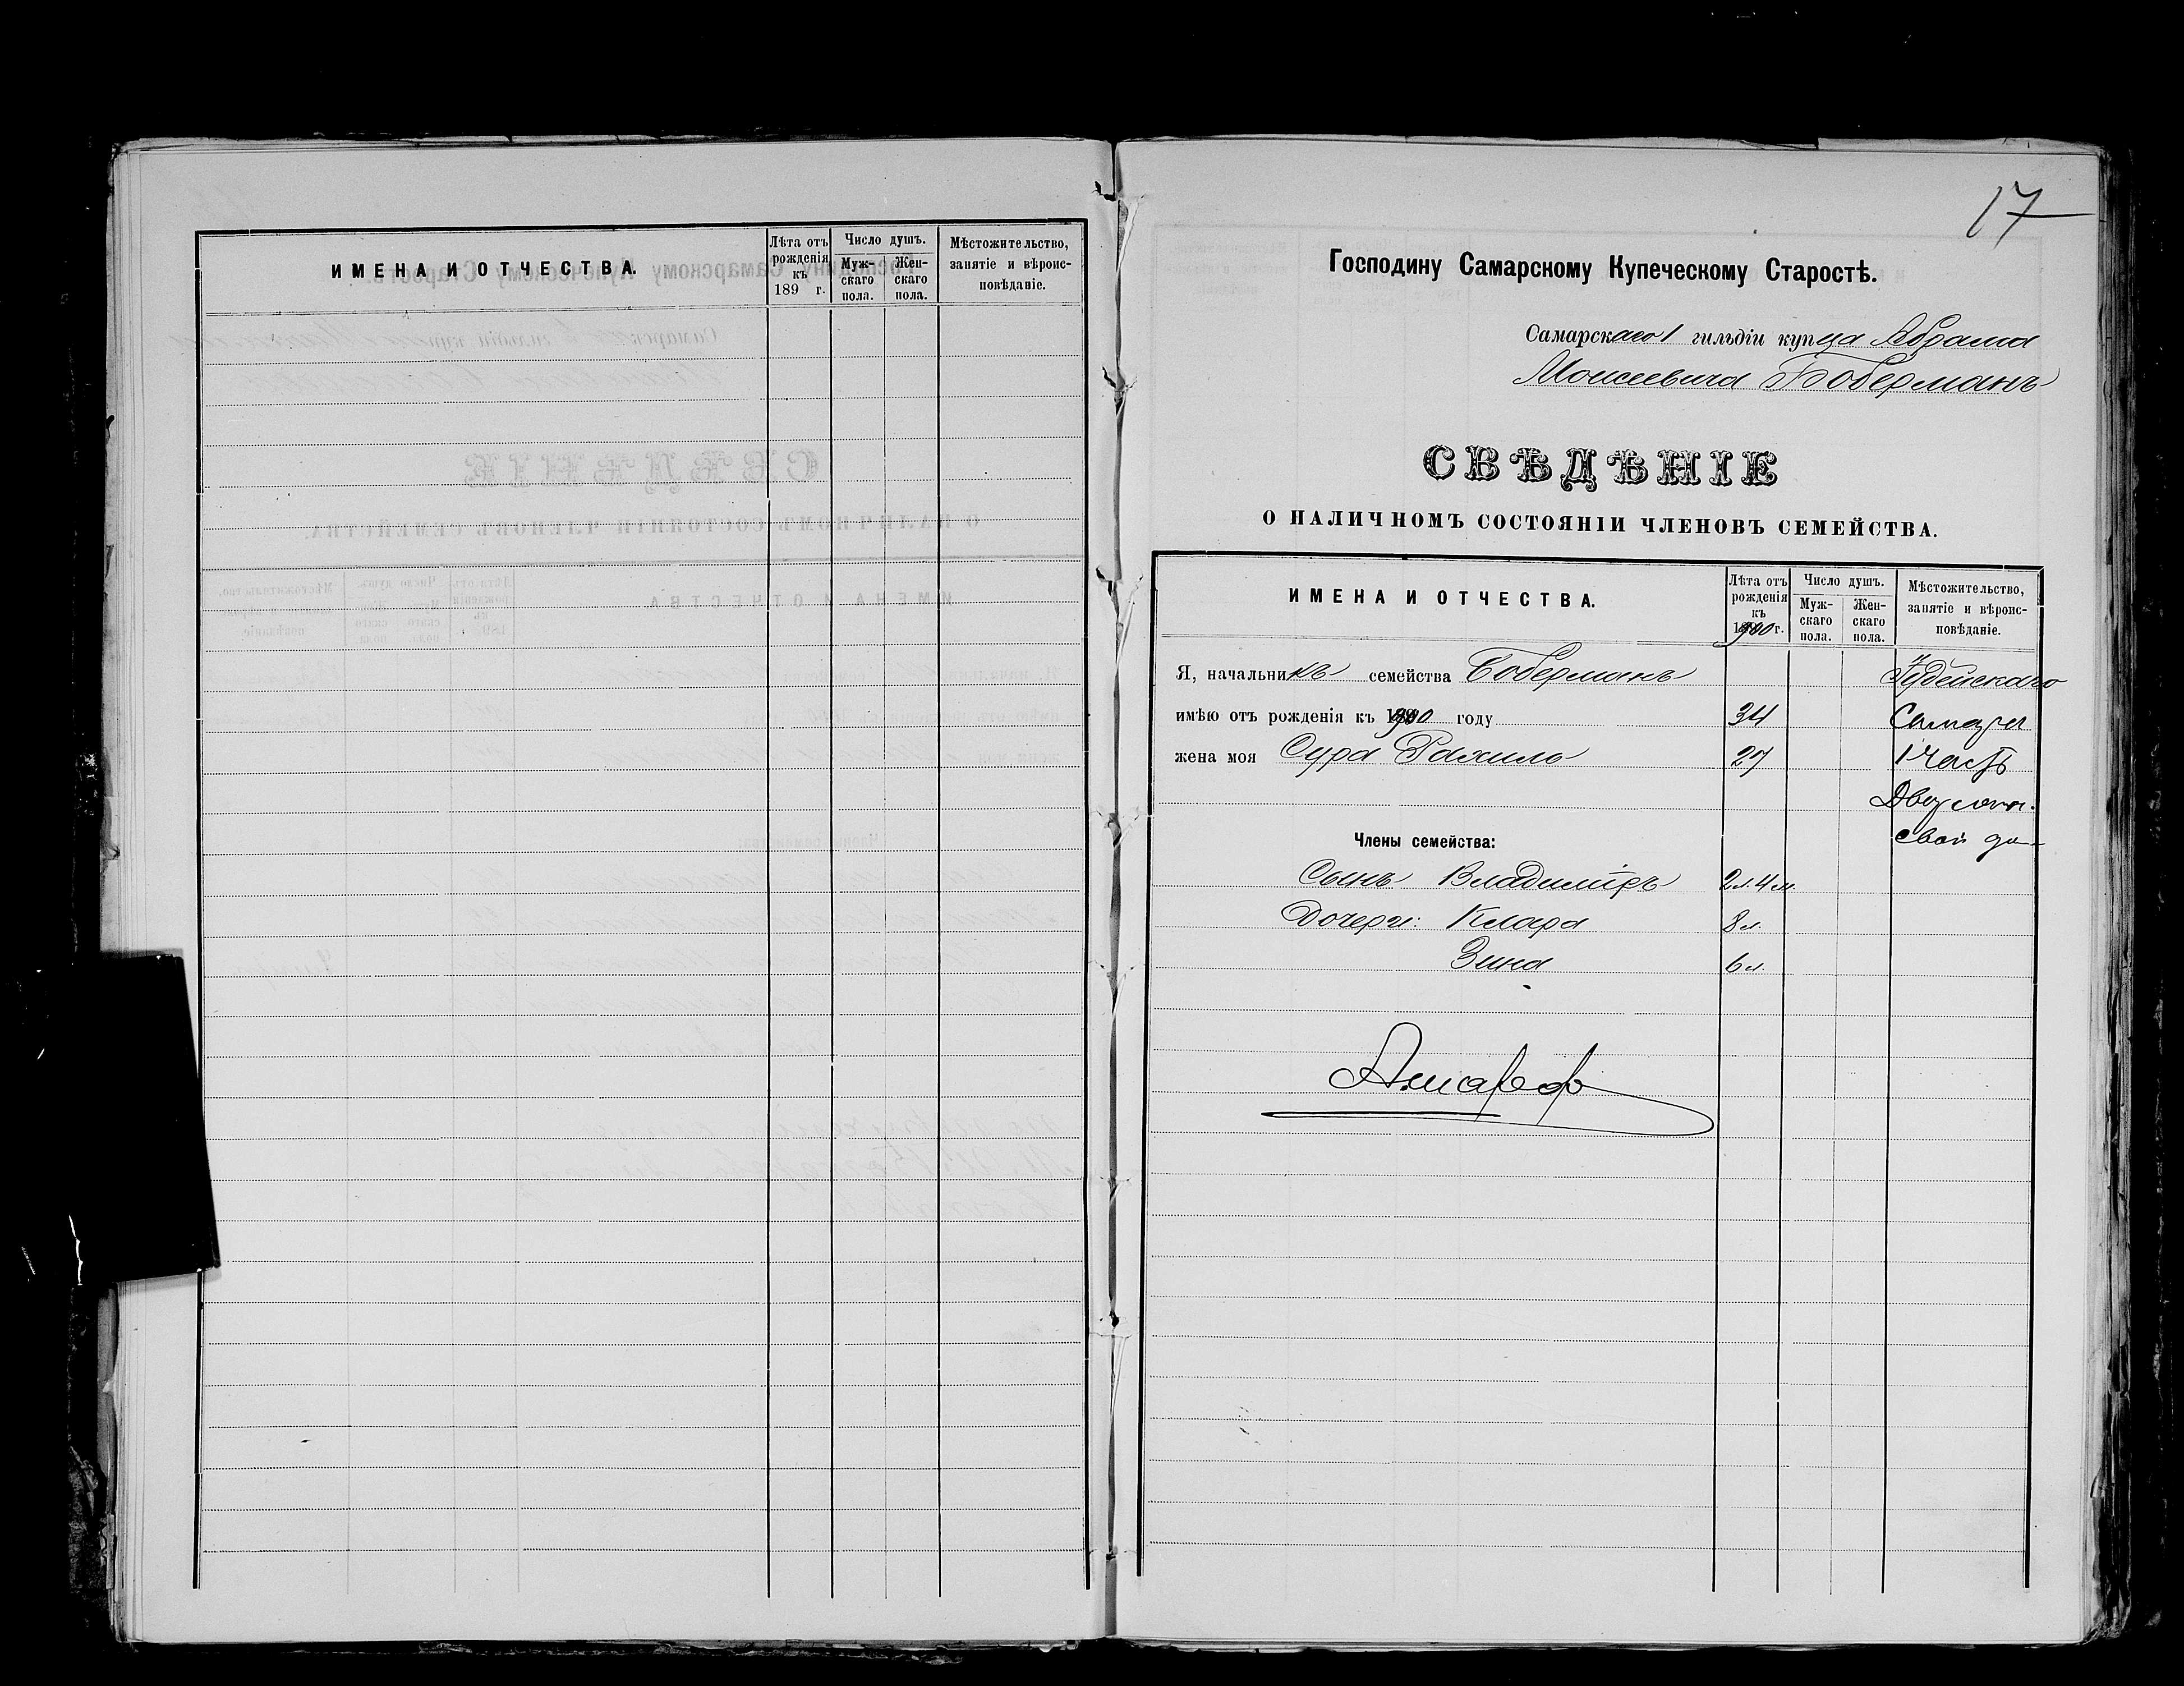 ИМЕНА И ОТЧЕСТВА.
Лѣта отъ рожденія къ 189 г.
Число душъ.
Муж-скаго пола.
Жен-скаго пола.
Мѣстожительство, занятіе и вѣроис-повѣданіе.
17
Господину Самарскому Купеческому Старостѣ.
Самарскаго 1 гильдіи купца Абрама
Моисеевича Боберманъ
СВѢДѢНІЕ
О НАЛИЧНОМЪ СОСТОЯНІИ ЧЛЕНОВЪ СЕМЕЙСТВА.
ИМЕНА И ОТЧЕСТВА.
Лѣта отъ рожденія къ 1900 г.
Число душъ.
Муж-скаго пола.
Жен-скаго пола.
Мѣстожительство, занятіе и вѣроис-повѣданіе.
Я, начальникъ семейства Боберманъ Іудейскаго
имѣю отъ рожденія къ 1900 году 34 Самара
жена моя Сура Рахиль 27 1 часть
Члены семейства: свой
Сынъ Владиміръ 2 л. 4 м.
Дочери: Клара 8 л.
Зина 6 л.